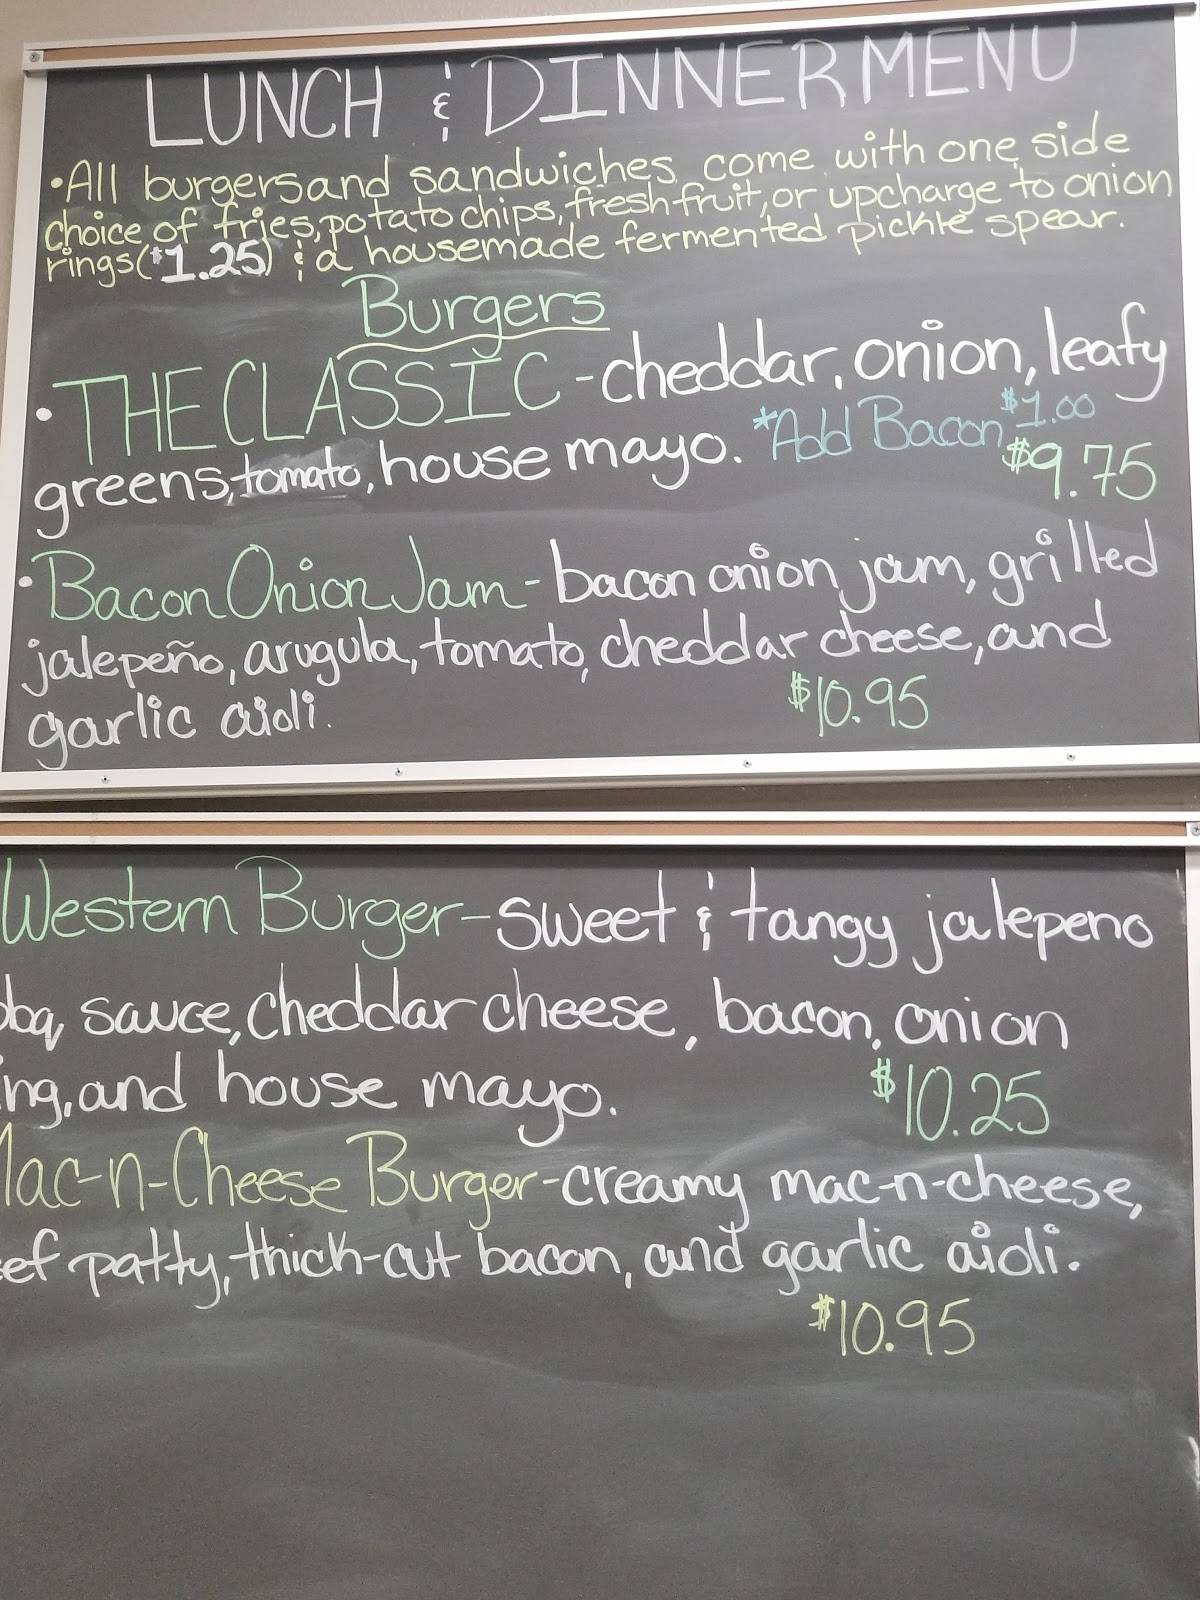 LUNCH & DINNER MENU
•All burgers and sandwiches come with one side
choice of fries, potato chips, fresh fruit, or upcharge to onion
rings($1.25) & a housemade fermented pickle spear.
Burgers
•THE CLASSIC - cheddar, onion, leafy
greens, tomato, house mayo. *Add Bacon $1.00
$9.75
•Bacon Onion Jam - bacon onion jam, grilled
jalepeño, arugula, tomato, cheddar cheese, and
garlic aioli.
$10.95
Western Burger - sweet & tangy jalepeno
bbq sauce, cheddar cheese, bacon, onion
ing, and house mayo.
$10.25
Mac-n-Cheese Burger - creamy mac-n-cheese,
ef patty, thick-cut bacon, and garlic aioli.
$10.95